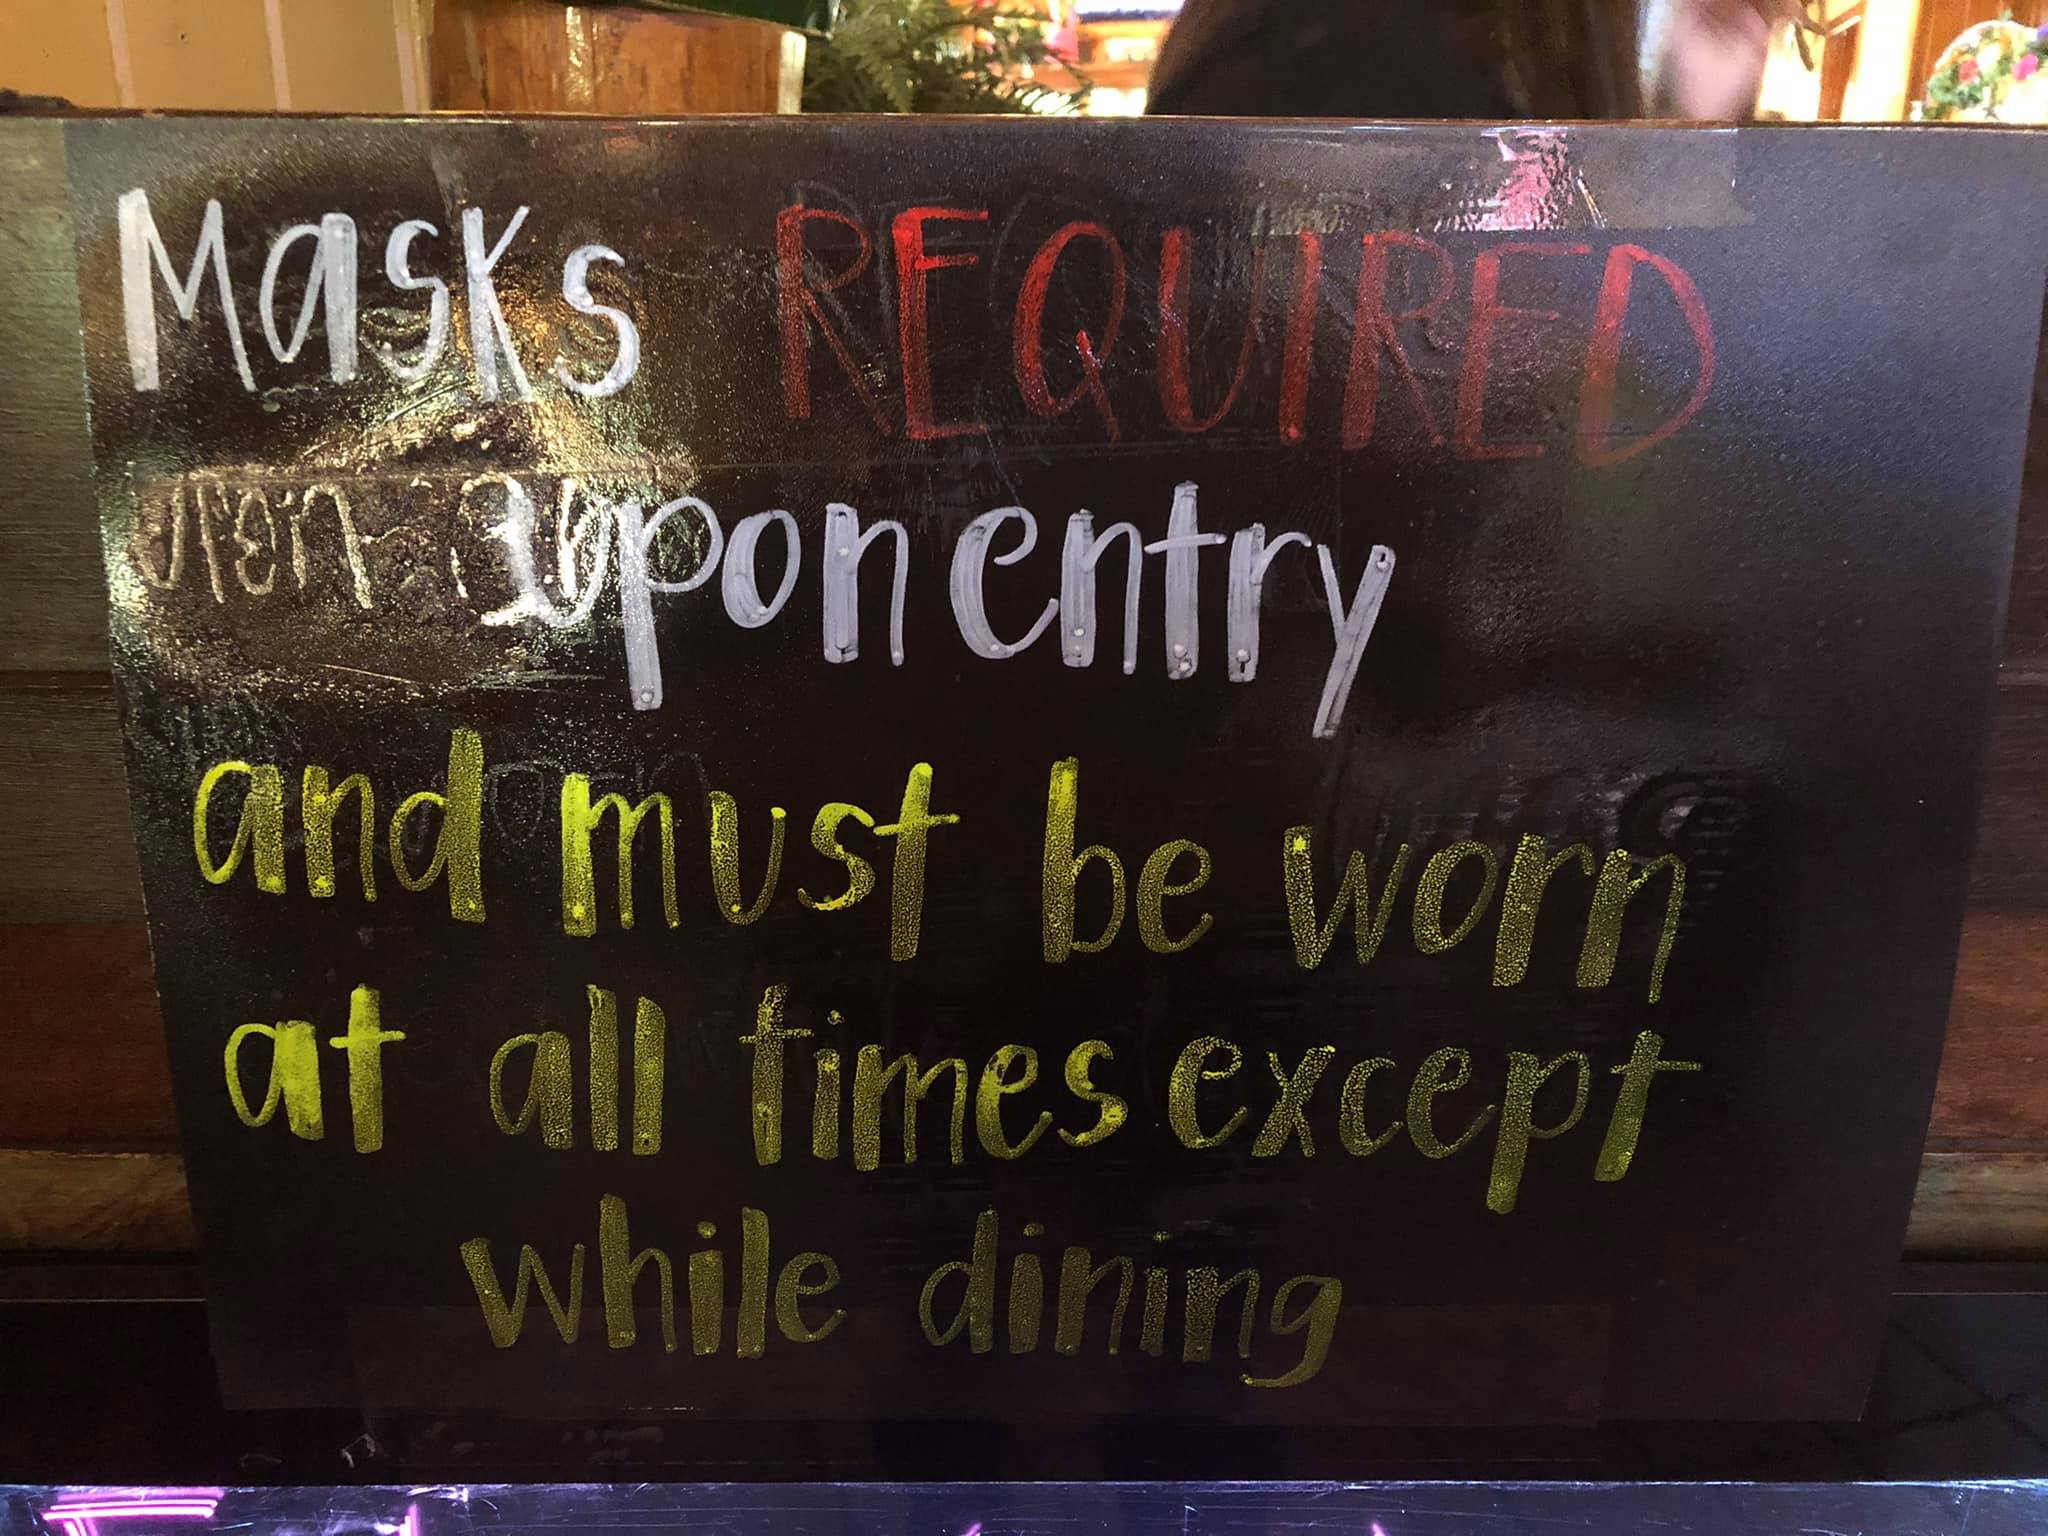 Masks REQUIRED
upon entry
and must be worn
at all times except
while dining